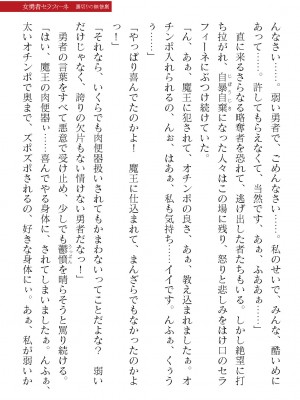 女勇者セラフィーネ 裏切りの解放劇
あんっ……。弱い勇者で、ごめんなさい……。私のせいで、みんな、酷いめに
あって……。許してもらえなくて、当然です。あぁ、ふあぁぁ……」
　直に来るさらなる略奪者を恐れて、逃げ出した者たちもいる。しかし絶望に打
ち拉がれ、自暴自棄になった人々はこの場に残り、怒りと悲しみをはけ口のセラ
フィーネにぶつけ続けていた。
「ん、あぁ、魔王に犯されて、オチンポの良さ、あぁ、教え込まれましたぁ。オ
チンポ入れられるの、んぉ、はあぁ、私も気持ち……イイです。んふぁ、くぅう
ん！」
「やっぱり喜んでたのかよ！　魔王に仕込まれて、まんざらでもなかったのかよ
！」
「それなら、いくらでも肉便器扱いされてもかまわないってことだよな？　弱い
だけじゃなく、誇りの欠片もない情けない勇者だなっ！」
　勇者の言葉をすべて悪意で受け止め、少しでも鬱憤を晴らそうと罵り続ける。
「はい、魔王の肉便器ぃ……喜んでやる身体に、されてしまいましたぁ。んふぁ、
太いオチンポで奥まで、ズポズポされるの、好きな身体にぃ。あぁ、私が弱いか